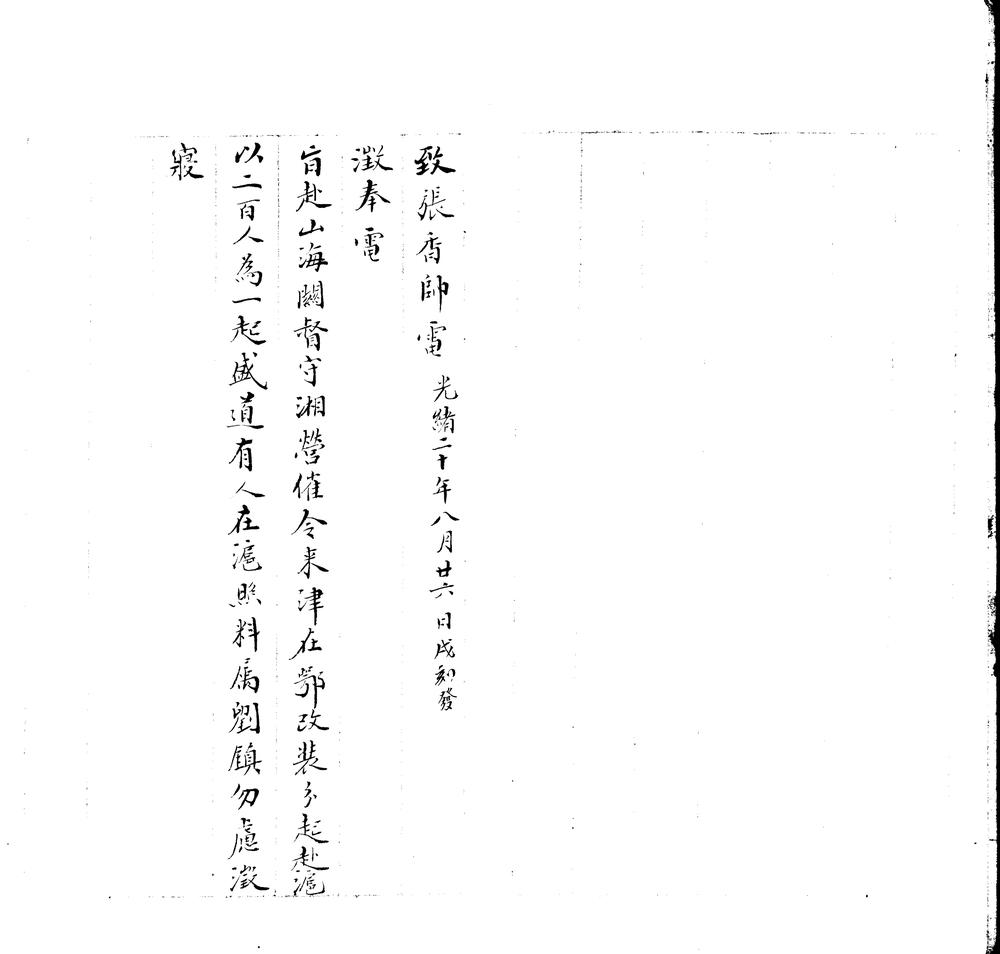 致張香帥電 光緒二十年八月廿六日戌刻發
澂奉電
旨赴山海關督守湘營催令来津在鄂改裝分起赴滬
以二百人為一起盛道有人在滬照料属劉鎮勿慮澂
寢